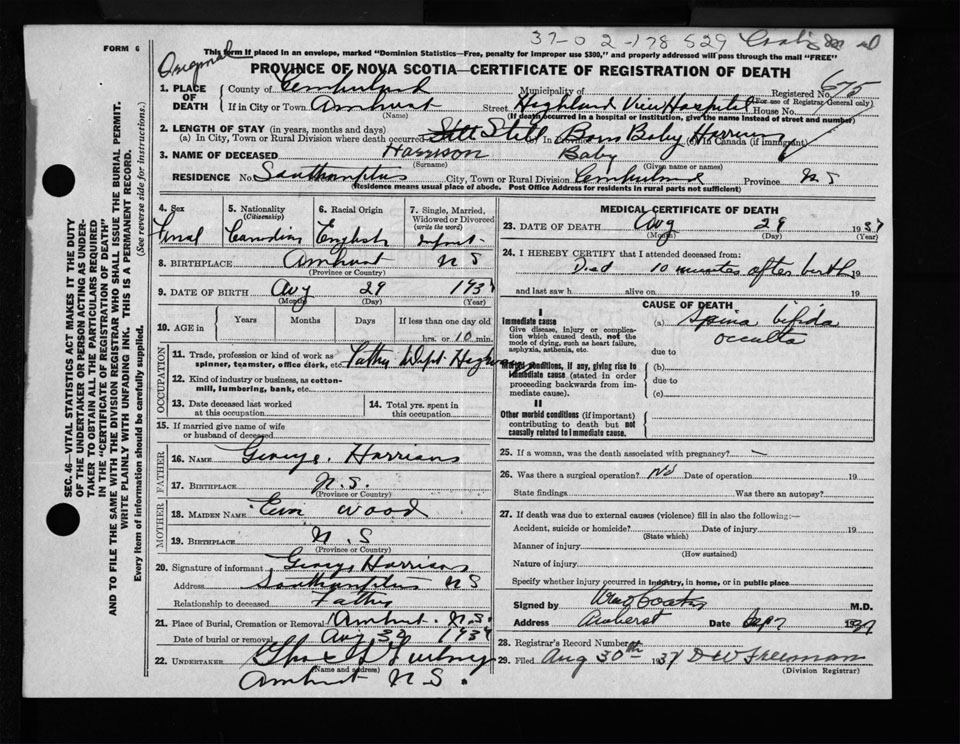 FORM 6
Original
37-0 2-178 529
This form if placed in an envelope, marked "Dominion Statistics—Free, penalty for improper use $300," and properly addressed will pass through the mail "FREE"
PROVINCE OF NOVA SCOTIA—CERTIFICATE OF REGISTRATION OF DEATH
1. PLACE OF DEATH
County of Cumberland Municipality of Registered No. 675
(For use of Registrar-General only)
If in City or Town Amherst Street Highland View Hospital House No.
(Name) (If death occurred in a hospital or institution, give the name instead of street and number)
2. LENGTH OF STAY (in years, months and days)
(a) In City, Town or Rural Division where death occurred Still Born Baby Harrison (b) In Province (c) In Canada (if immigrant)
3. NAME OF DECEASED Harrison Baby
(Surname) (Given name or names)
RESIDENCE No. Southampton City, Town or Rural Division Cumberland Province N S
(Residence means usual place of abode. Post Office Address for residents in rural parts not sufficient)
4. Sex
5. Nationality (Citizenship) Canadian
6. Racial Origin English
7. Single, Married, Widowed or Divorced (write the word) Infant
8. BIRTHPLACE Amherst N S
(Province or Country)
9. DATE OF BIRTH Aug 29 193
(Month) (Day) (Year)
10. AGE in Years Months Days If less than one day old
hrs. or 10 min.
OCCUPATION
11. Trade, profession or kind of work as spinner, teamster, office clerk, etc. Father Dept Highways
12. Kind of industry or business, as cotton-mill, lumbering, bank, etc.
13. Date deceased last worked at this occupation
14. Total yrs. spent in this occupation
15. If married give name of wife or husband of deceased
FATHER
16. NAME George Harrison
17. BIRTHPLACE N.S.
(Province or Country)
MOTHER
18. MAIDEN NAME Wood
19. BIRTHPLACE N.S
(Province or Country)
20. Signature of informant George Harrison
Address Southampton NS
Relationship to deceased Father
21. Place of Burial, Cremation or Removal Amherst N.S.
Date of burial or removal Aug 30 193
22. UNDERTAKER
(Name and address)
Amherst N.S.
MEDICAL CERTIFICATE OF DEATH
23. DATE OF DEATH Aug 29 1937
(Month) (Day) (Year)
24. I HEREBY CERTIFY that I attended deceased from:
Died 10 minutes after birth 19
and last saw h alive on 19
CAUSE OF DEATH
I
Immediate cause
Give disease, injury or complication which caused death, not the mode of dying, such as heart failure, asphyxia, asthenia, etc.
(a) Spina bifida
occulta
due to
Morbid conditions, if any, giving rise to immediate cause (stated in order proceeding backwards from immediate cause).
(b)
due to
(c)
II
Other morbid conditions (if important) contributing to death but not causally related to immediate cause.
25. If a woman, was the death associated with pregnancy? —
26. Was there a surgical operation? No Date of operation 19
State findings Was there an autopsy?
27. If death was due to external causes (violence) fill in also the following:—
Accident, suicide or homicide? Date of injury 19
(State which)
Manner of injury
(How sustained)
Nature of injury
Specify whether injury occurred in industry, in home, or in public place
Signed by M.D.
Address Amherst Date Sep 7 19
28. Registrar's Record Number
29. Filed Aug 30th 1937 D W Freeman
(Division Registrar)
SEC. 46—VITAL STATISTICS ACT MAKES IT THE DUTY
OF THE UNDERTAKER OR PERSON ACTING AS UNDER-
TAKER TO OBTAIN ALL THE PARTICULARS REQUIRED
IN THE "CERTIFICATE OF REGISTRATION OF DEATH"
AND TO FILE THE SAME WITH THE DIVISION REGISTRAR WHO SHALL ISSUE THE BURIAL PERMIT.
WRITE PLAINLY WITH UNFADING INK. THIS IS A PERMANENT RECORD.
Every item of information should be carefully supplied. (See reverse side for instructions.)